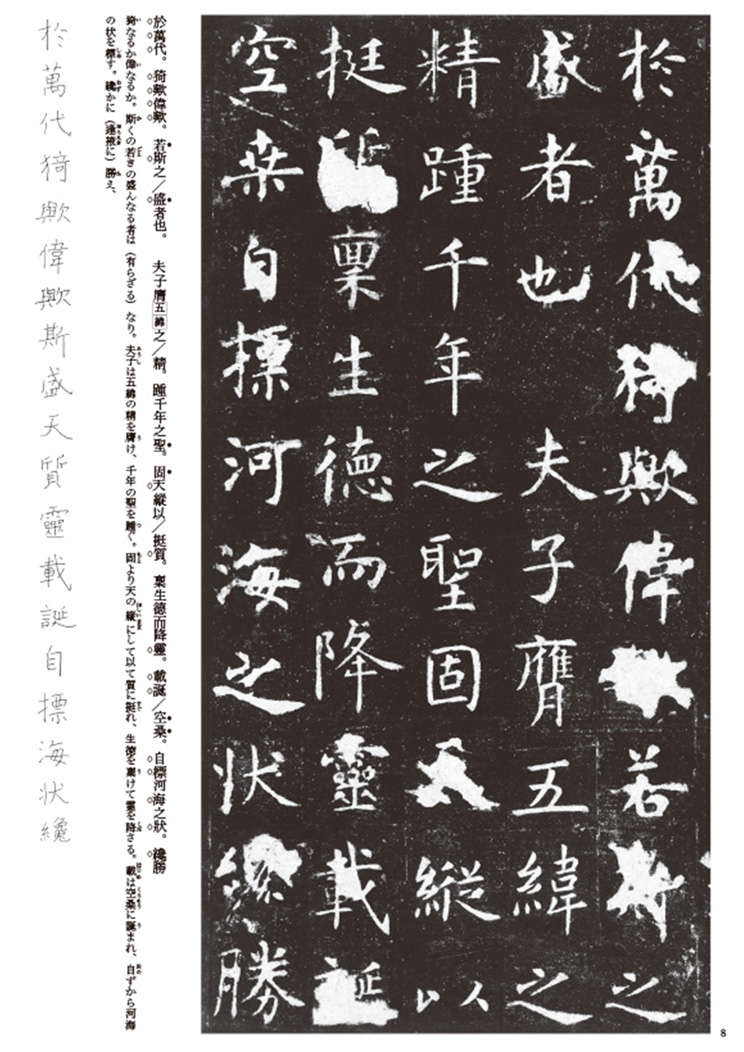 於萬代猗歟偉若斯之
盛者也　夫子膺五緯之
精踵千年之聖固天縱以
挺質稟生德而降靈載誕
空桑自標河海之状纔勝
於萬代。猗歟偉歟。若斯之／盛者也。　夫子膺五緯之／精。踵千年之聖。固天縱以／挺質。稟生德而降靈。載誕／空桑。自標河海之狀。纔勝
猗なるか偉なるか。斯くの若きの盛んなる者は（有らざる）なり。夫子は五緯の精を膺け、千年の聖を踵ぐ。固より天の縦にして以て質に挺れ、生徳を稟けて靈を降さる。載は空桑に誕まれ、自ずから河海
の状を標す。纔かに（逢掖に）勝え、
於萬代猗歟偉歟斯盛天質靈載誕自標海状纔
8